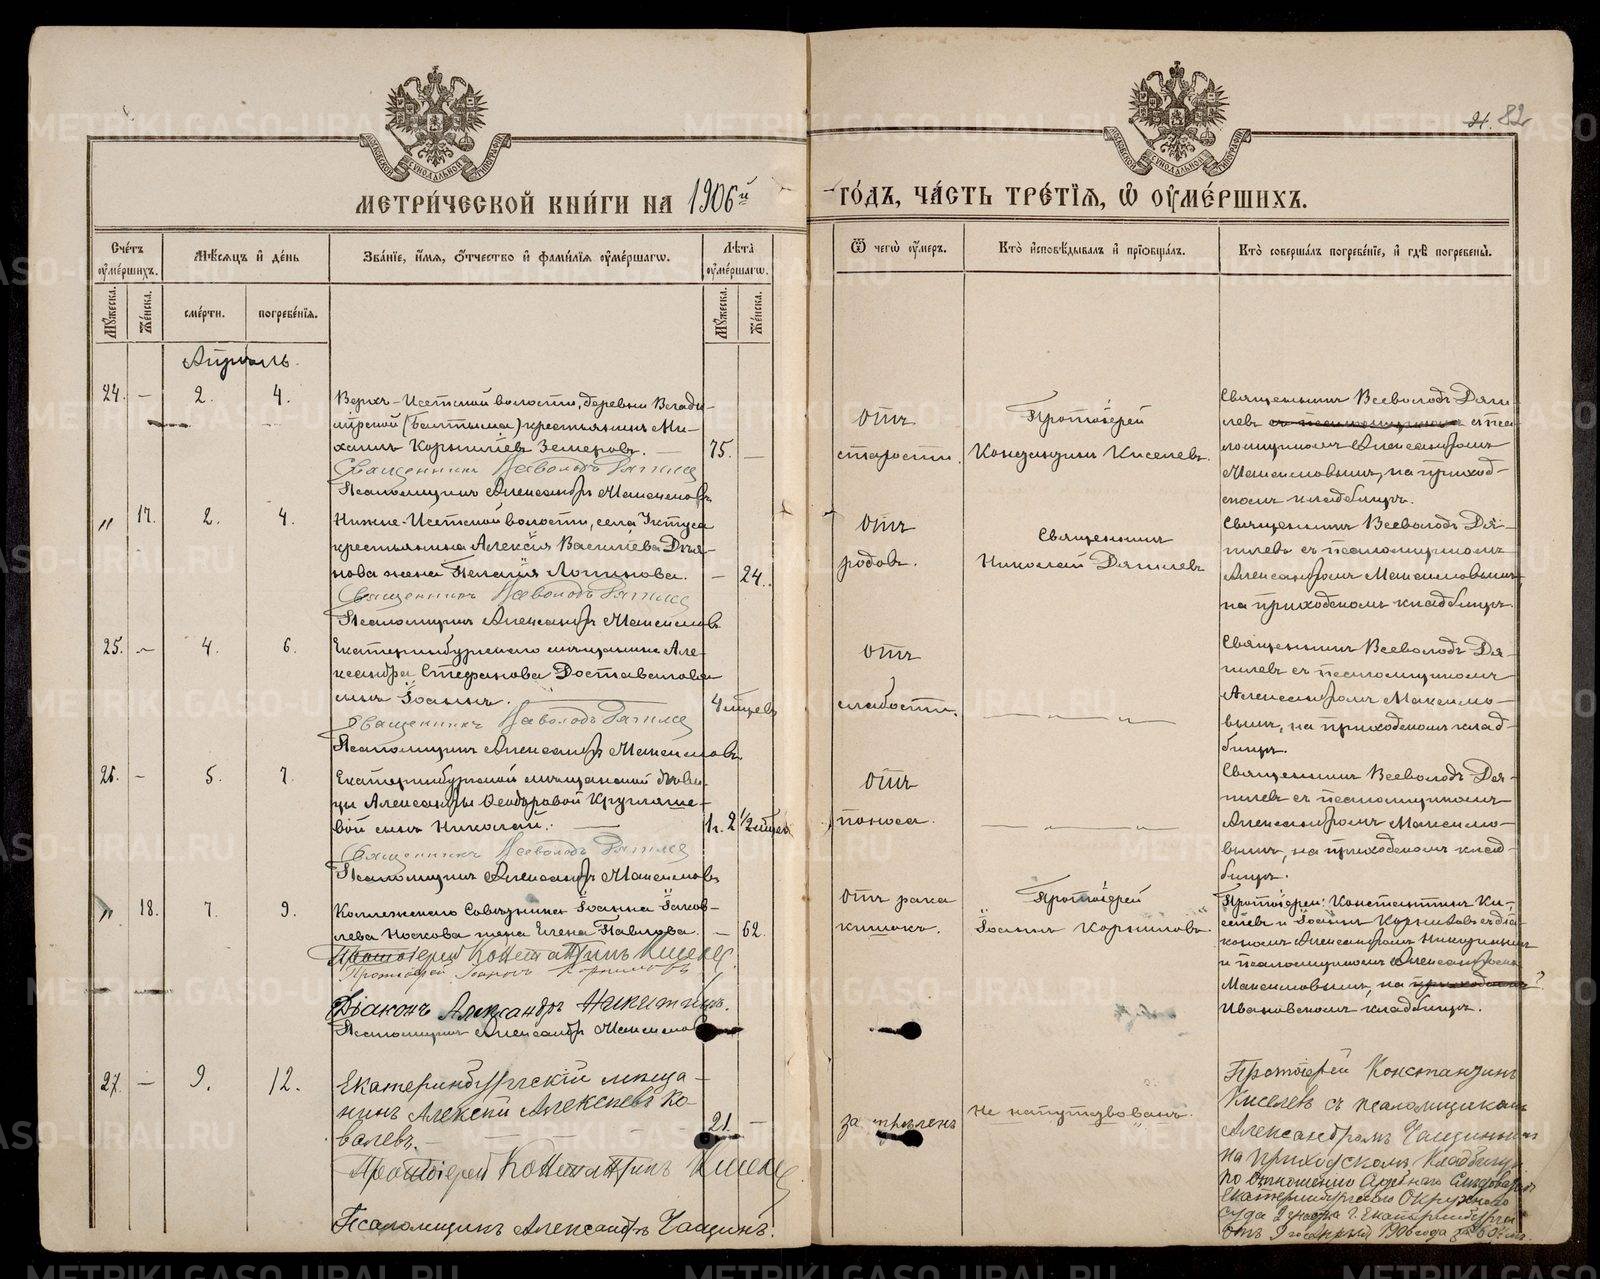 21. 82
МОСКОВСКОЙ СѴНОДАЛЬНОЙ ТИПОГРАФІИ
МОСКОВСКОЙ СѴНОДАЛЬНОЙ ТИПОГРАФІИ
МЕТРИ́ЧЕСКОЙ КНИ́ГИ НА 1906й
ГО́ДЪ, ЧА́СТЬ ТРЕ́ТІЯ, Ѡ ОУМЕ́РШИХЪ.
Счéтъ оумéршихъ.
Мѣ́сяцъ и҆ дéнь
Звáніе, и҆́мя, ѻ҆́тчество и҆ фами́лія оумéршагѡ.
Лѣ́та оумéршагѡ.
Ѿ чегѡ̀ оу́меръ.
Ктò и҆сповѣ́дывалъ и҆ прїѡбщáлъ.
Ктò совершáлъ погребéніе, и҆ гдѣ̀ погребены̀.
Му́жеска.
Жéнска.
смéрти.
погребéнія.
Му́жеска.
Жéнска.
Апрѣль.
24. — 2. 4.
Верхъ-Исетской волости, деревни Влади-
мірской (Балтыма) крестьянинъ Ми-
хаилъ Корниліевъ Земеровъ. —
75. —
Священникъ Всеволодъ Дягилев
Псаломщикъ Александръ Максимовъ
отъ
старости.
Протоіерей
Константинъ Киселевъ.
Священникъ Всеволодъ Дяги-
левъ съ пса-
ломщикомъ Александромъ
Максимовымъ, на приход-
скомъ кладбищѣ.
" 17. 2. 4.
Нижне-Исетской волости, села Уктуса
крестьянина Алексія Васильева Дья-
нова жена Пелагія Логинова.
— 24.
Священникъ Всеволодъ Дягилев
Псаломщикъ Александръ Максимовъ
отъ
родовъ.
Священникъ
Николай Дягилевъ
Священникъ Всеволодъ Дя-
гилевъ съ псаломщикомъ
Александромъ Максимовымъ,
на приходскомъ кладбищѣ.
25. — 4. 6.
Екатеринбургскаго мѣщанина Але-
ксандра Стефанова Доставалова
сынъ Іоаннъ.
4 мѣсяц.
Священникъ Всеволодъ Дягилев
Псаломщикъ Александръ Максимовъ.
отъ
слабости.
— " — " —
Священникъ Всеволодъ Дя-
гилевъ съ псаломщикомъ
Александромъ Максимо-
вымъ, на приходскомъ клад-
бищѣ.
26. — 5. 7.
Екатеринбургской мѣщанской дѣви-
цы Александры Ѳеодоровой Кругляше-
вой сынъ Николай. —
1г. 2 1/2 мѣсяц.
Священникъ Всеволодъ Дягилев
Псаломщикъ Александръ Максимовъ
отъ
поноса.
— " — " —
Священникъ Всеволодъ Дя-
гилевъ съ псаломщикомъ
Александромъ Максимо-
вымъ, на приходскомъ клад-
бищѣ.
" 18. 7. 9.
Коллежскаго Совѣтника Іоанна Іаков-
лева Носкова жена Елена Павлова.
— 62.
Протоіерей Константинъ Киселев
Протоіерей Іоаннъ Корниловъ
Діаконъ Александръ Никитинъ.
Псаломщикъ Александръ Максимов
отъ рака
кишокъ.
Протоіерей
Іоаннъ Корниловъ
Протоіереи: Константинъ Ки-
селевъ и Іоаннъ Корниловъ съ діа-
кономъ Александромъ Никитинымъ
и псаломщикомъ Александромъ
Максимовымъ, на приходскомъ
Ивановскомъ кладбищѣ.
27. — 9. 12.
Екатеринбургскій мѣща-
нинъ Алексій Алексѣевъ Ко-
валевъ.
21. —
Протоіерей Константинъ Киселев
Псаломщикъ Александръ Чащинъ.
застрѣленъ
Не напутствованъ.
Протоіерей Константинъ
Киселевъ съ псаломщикомъ
Александромъ Чащинымъ
на приходскомъ кладбищѣ
по отношенію Судебнаго Слѣдователя
Екатеринбургскаго Окружнаго
Суда 2 участка г. Екатеринбурга
отъ 9 1906 года за № 604.